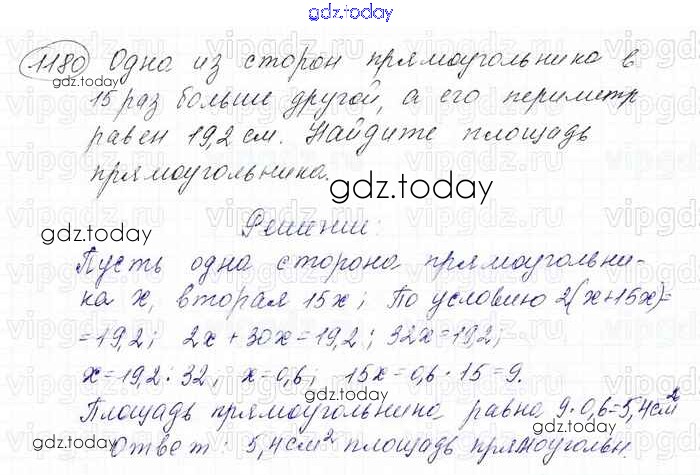 gdz.today
1180 Одна из сторон прямоугольника в
gdz.today
15 раз больше другой, а его периметр
равен 19,2 см. Найдите площадь
прямоугольника.
gdz.today
gdz.today
Решение:
Пусть одна сторона прямоугольни-
ка x, вторая 15x; По условию 2(x+15x)=
=19,2; 2x+30x=19,2; 32x=19,2;
x=19,2:32; x=0,6; 15x=0,6·15=9.
Площадь прямоугольника равна 9·0,6=5,4см²
Ответ: 5,4см² площадь прямоугольн.
gdz.today
gdz.today